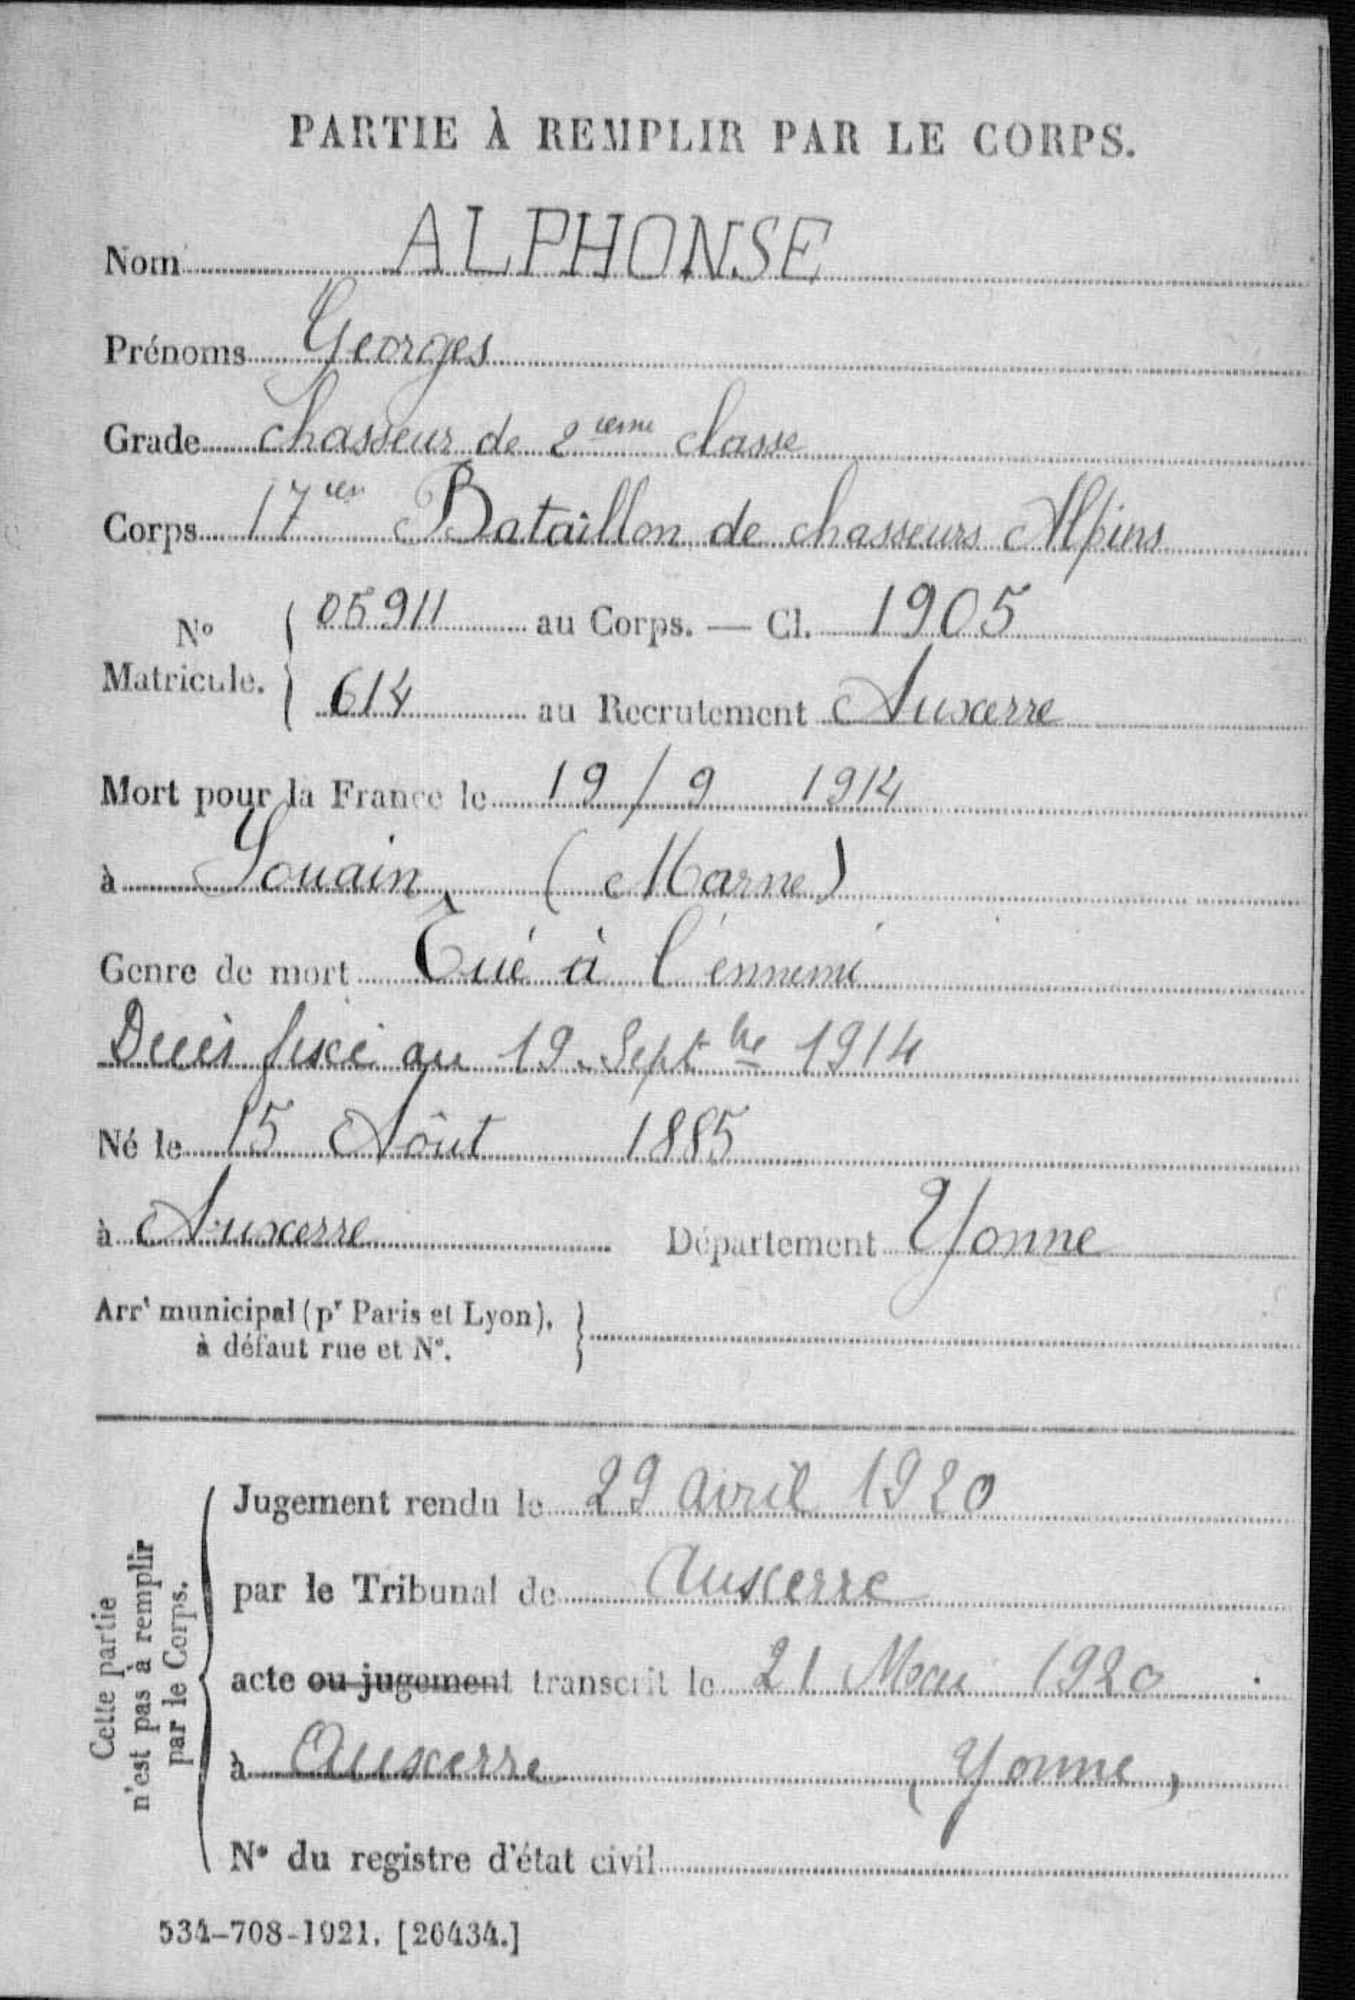 PARTIE À REMPLIR PAR LE CORPS.
Nom ALPHONSE
Prénoms Georges
Grade chasseur de 2ième classe
Corps 17ien Bataillon de chasseurs Alpins
No Matricule. { 05911 au Corps. — Cl. 1905
614 au Recrutement Auxerre
Mort pour la France le 19/9 1914
à Souain (Marne)
Genre de mort Tué à l'ennemi
Décès fixé au 19 Septbre 1914
Né le 15 Aôut 1885
à Auxerre Département Yonne
Arrt municipal (pr Paris et Lyon), }
à défaut rue et N°.
Cette partie
n'est pas à remplir
par le Corps.
Jugement rendu le 29 avril 1920
par le Tribunal de Auxerre
acte ou jugement transcrit le 21 Mai 1920
à Auxerre (Yonne)
N° du registre d'état civil
534-708-1921. [26434.]